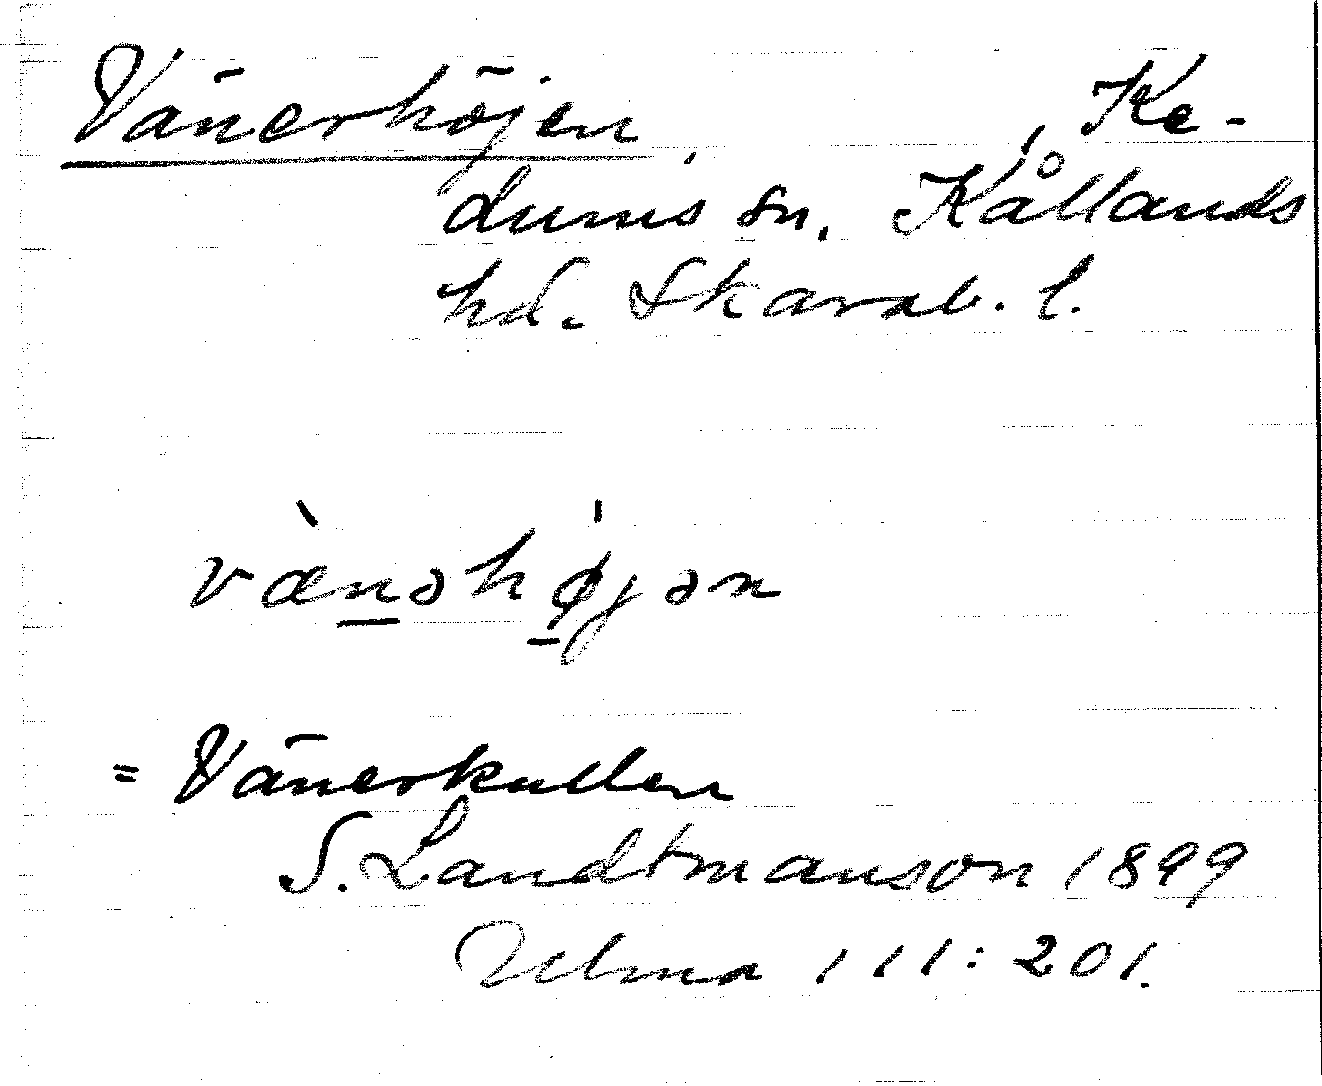 Vänerhöjen, , Ke-
dums sn, Kållands
hd. Skarab. l.
vænəhøjən
= Vänerkullen
S. Landtmanson 1899
Ulma 111:201.